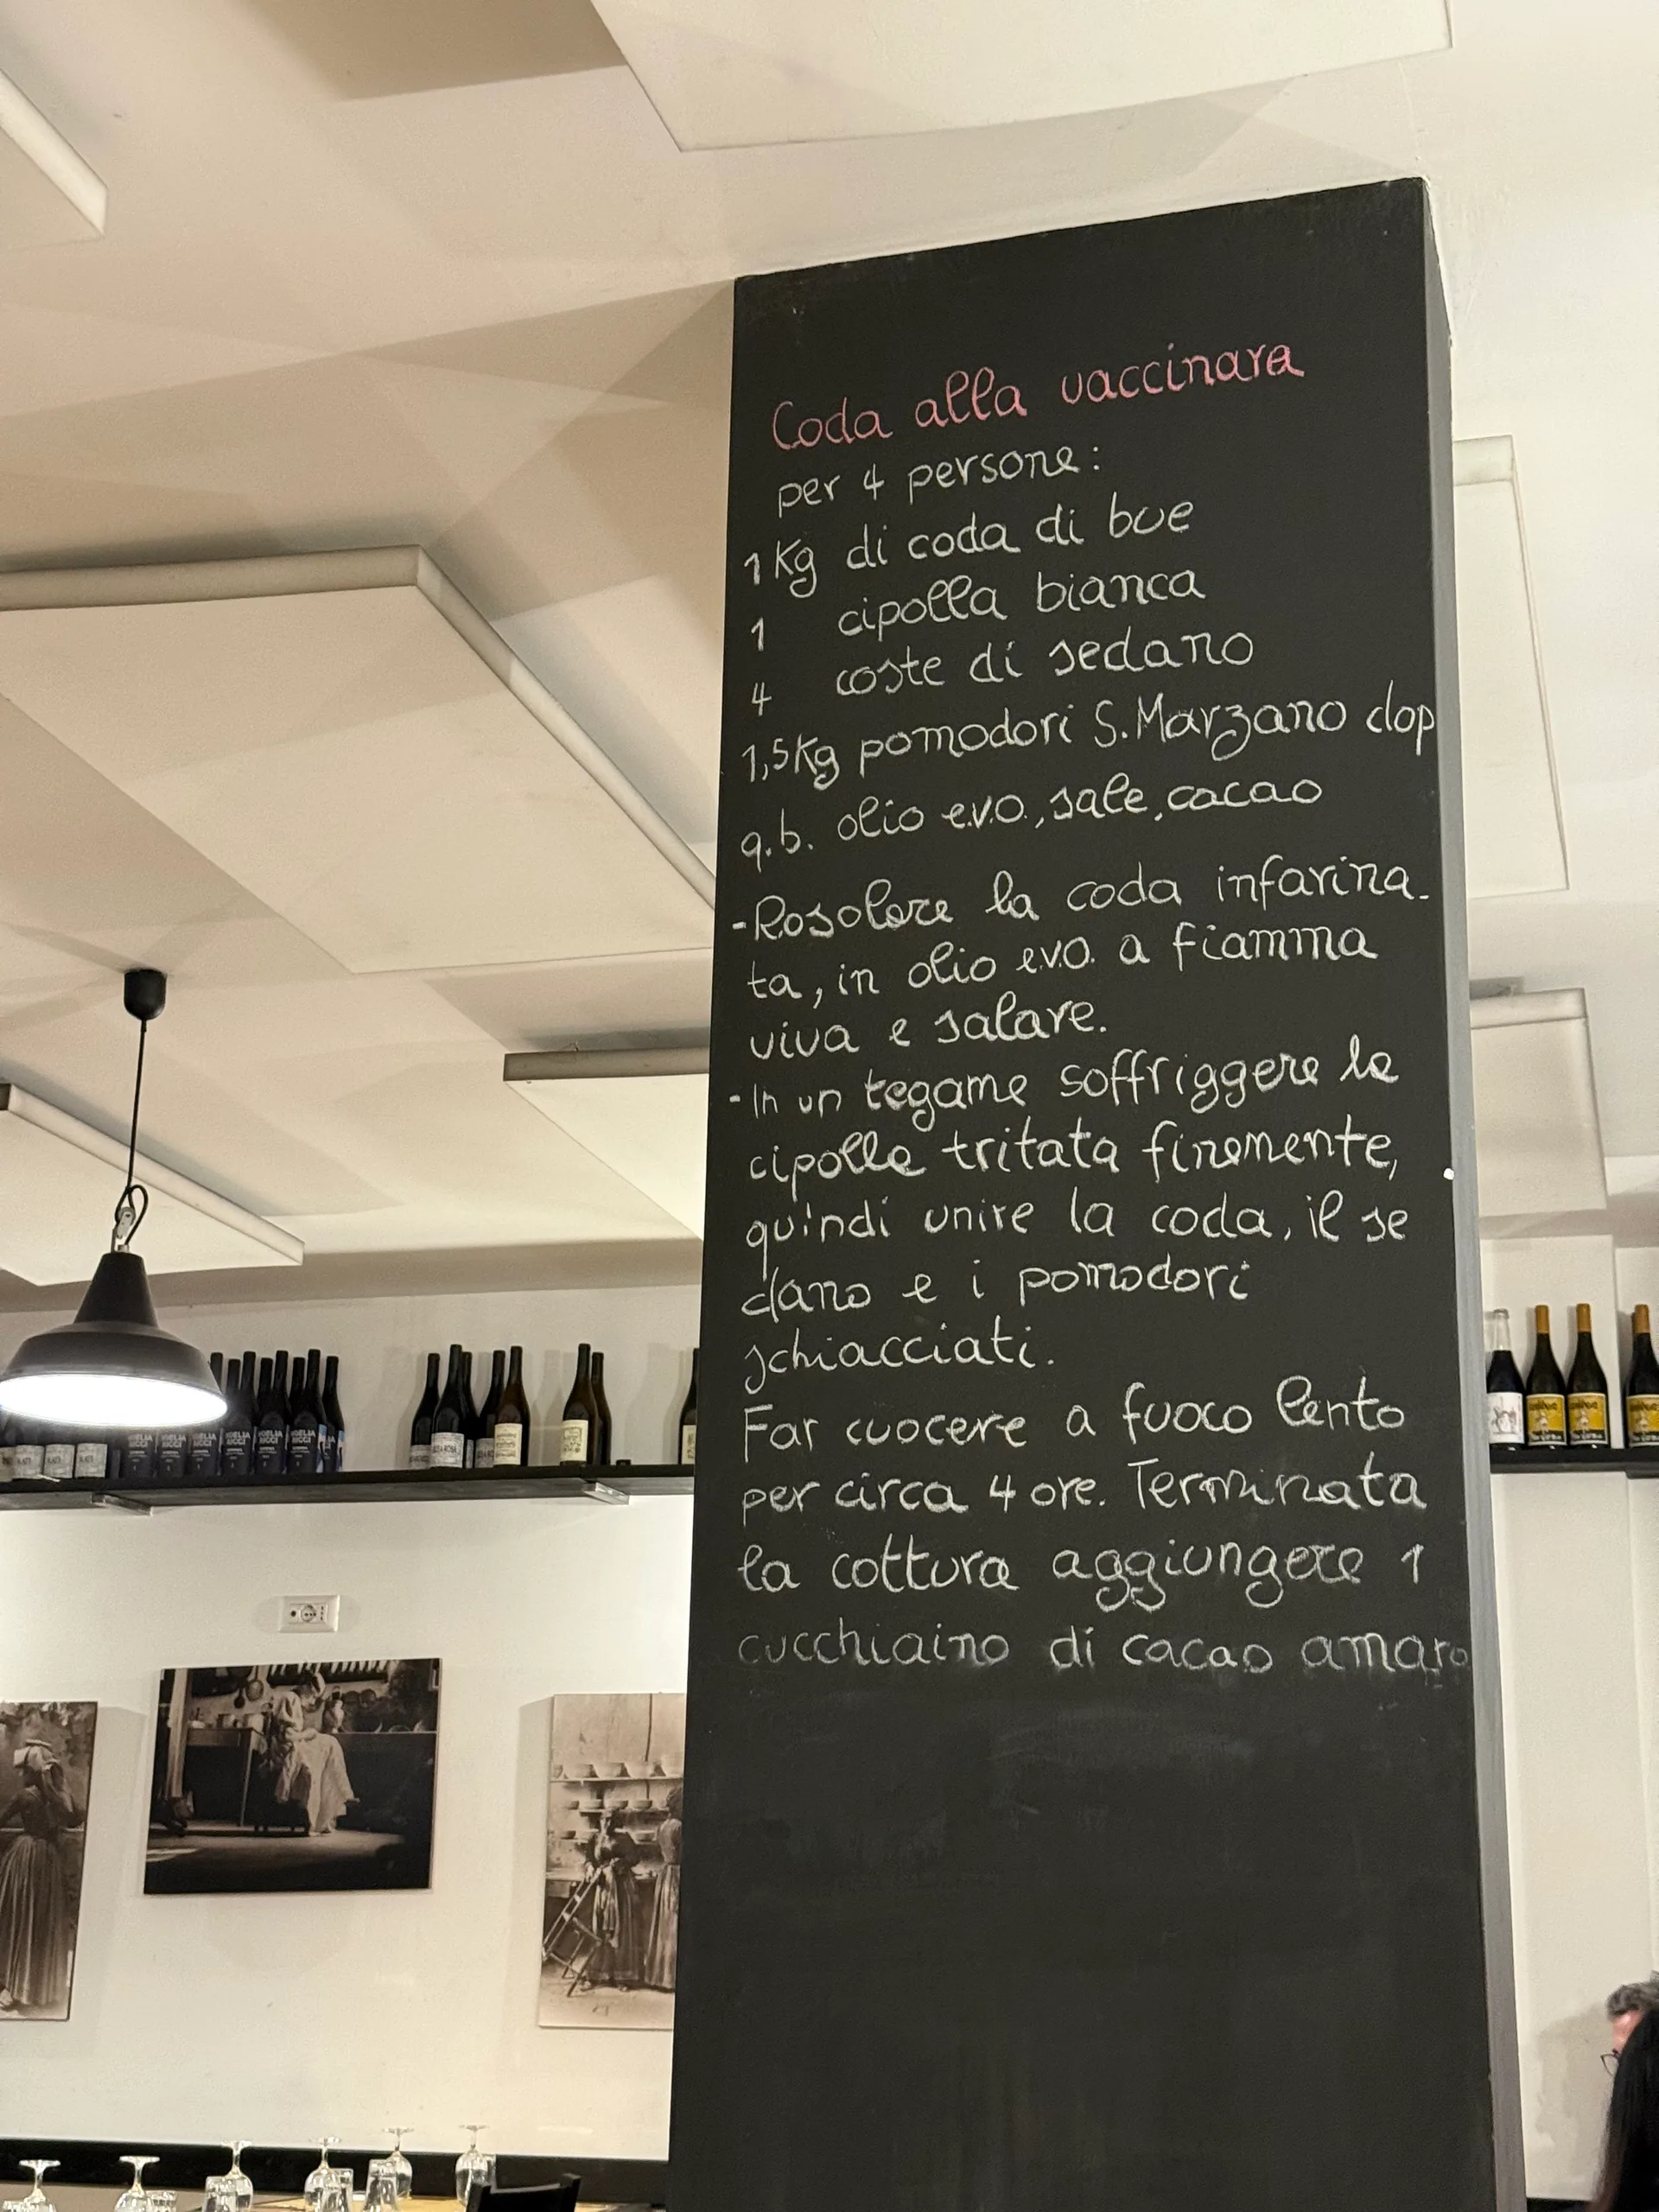 Coda alla vaccinara
per 4 persone:
1 Kg di coda di bue
1 cipolla bianca
4 coste di sedano
1,5Kg pomodori S.Marzano dop
q.b. olio e.v.o., sale, cacao
-Rosolare la coda infarina-
ta, in olio e.v.o. a fiamma
viva e salare.
-In un tegame soffriggere la
cipolla tritata finemente,
quindi unire la coda, il se
dano e i pomodori
schiacciati.
Far cuocere a fuoco lento
per circa 4 ore. Terminata
la cottura aggiungere 1
cucchiaino di cacao amaro